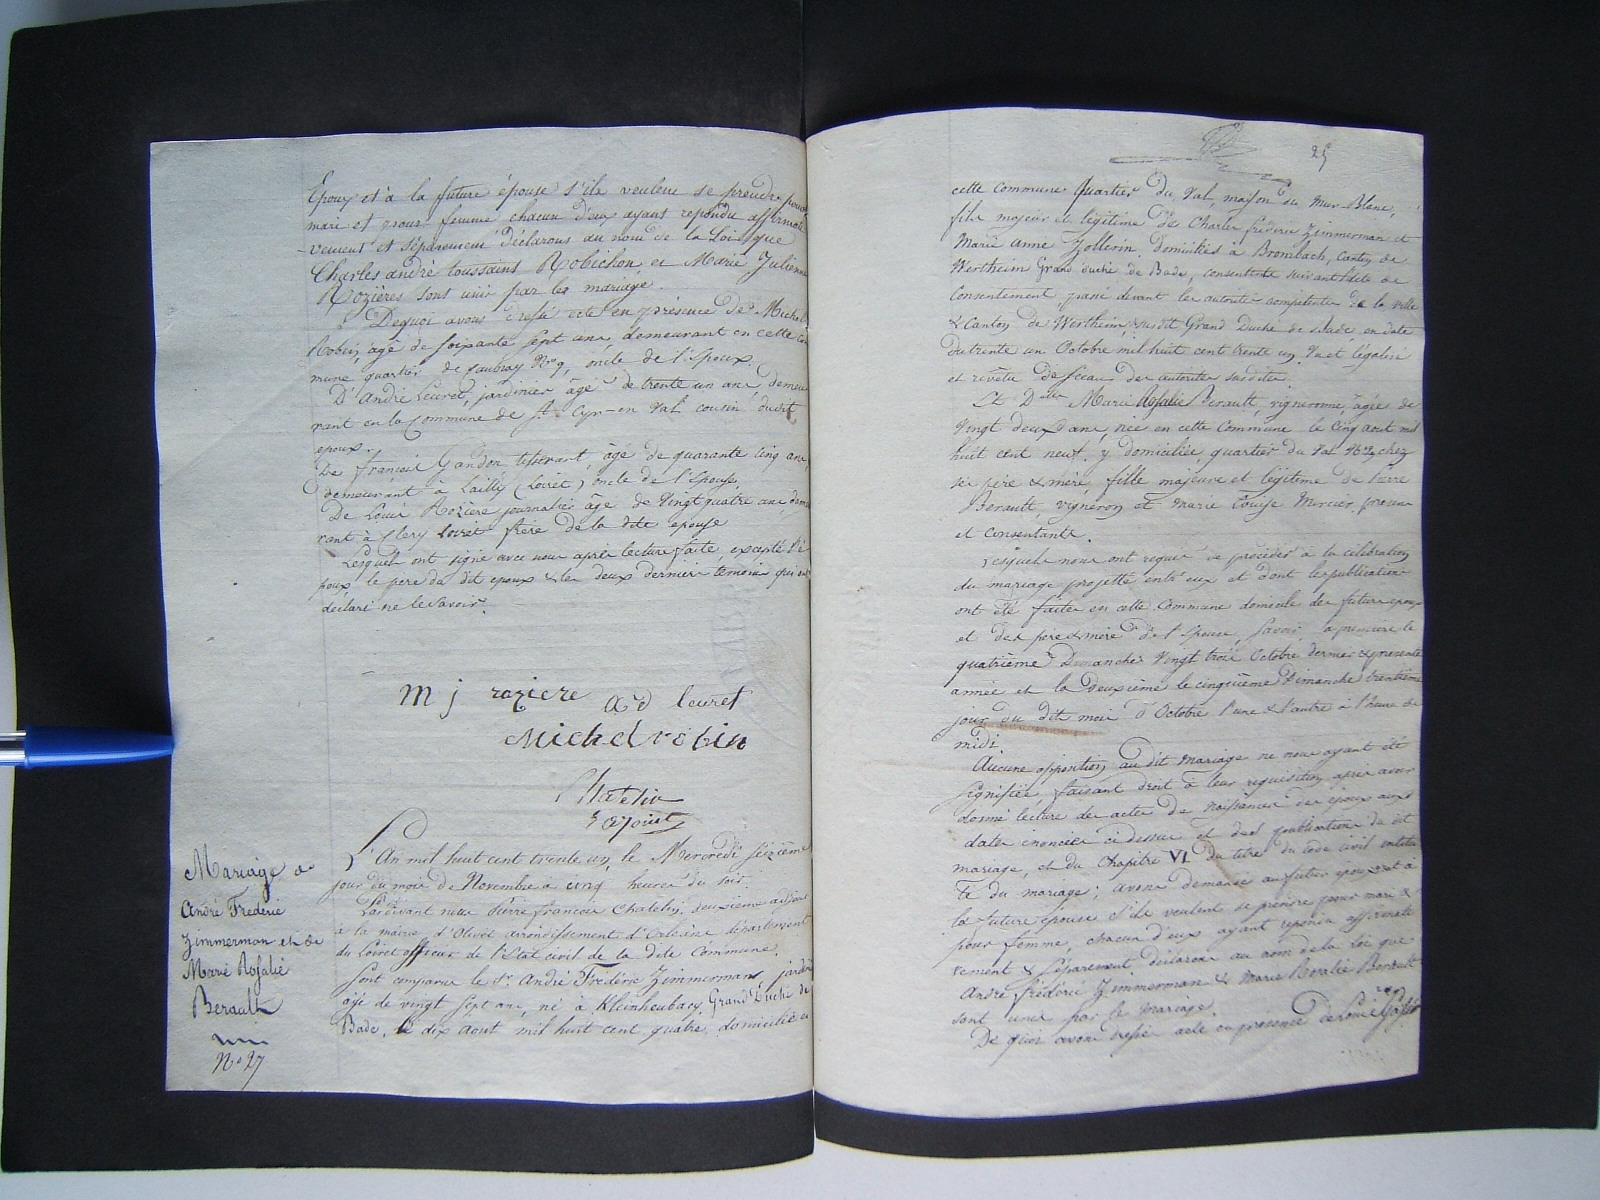 Epoux et à la future épouse s'ils veulent se prendre pour
mari et pour femme chacun d'eux ayant répondu affirmati
-vement et séparément déclarons au nom de la Loi que
Charles andré toussaint Robichon et Marie Julienne
Rozières sont unis par le mariage.
Dequoi avons dressé acte en présence de Michel
Robin, agé de soixante sept ans, demeurant en cette Com
mune quartier de faubray No 9, oncle de l'Epoux.
D'André Leuret, jardinier âgé de trente un ans, demeu
rant en la Commune de St Cyr-en Val cousin dudit
epoux.
De françois Gandon tisserant, âgé de quarante cinq ans,
demeurant à Lailly (Loiret) oncle de l'Epouse,
De Louis Rozière journalier âgé de Vingt quatre ans, demeu
rant à Clery Loiret frère de la dite epouse
Lesquels ont signé avec nous après lecture faite, excepté l'é
poux, le pere du dit epoux & les deux derniers temoins qui ont
déclaré ne le savoir.
m j roziere ad leuret
Michel robin
Chatelin
adjoint
Mariage de
André Frederic
Zimmerman et de
Marie Rosalie
Berault
No 27
L'An mil huit cent trente un, le Mercredi seizième
jour du mois de Novembre à cinq heures du soir.
Pardevant nous Pierre francois Chatelin, deuxième adjoint
à la mairie d'Olivet arrondissement d'Orléans département
du Loiret officier de l'Etat civil de la dite Commune,
Sont comparus le Sr. André Frédéric Zimmerman, jardinier
âgé de vingt sept ans, né à Kleinheubach, Grand Duché de
Bade, le dix aout mil huit cent quatre, domicilié en
25
cette commune Quartier du Val, maison du Mur-Blanc,
fils majeur et légitime de Charles fréderic Zimmerman et
Marie Anne Zollerin domiciliés à Brombach, Canton de
Wertheim Grand duché de Bade, consentants suivant l'acte de
Consentement, passé devant les autorités compétentes de la ville
& Canton de Wertheim, susdit Grand Duché de Bade, en date
du trente un Octobre mil huit cent trente un, Vu et légalisé
et revêtu du sceau des autorités susdites.
Et Delle Marie Rosalie Berault, vigneronne, âgée de
Vingt deux ans, née en cette Commune le Cinq aout mil
huit cent neuf, y domiciliée, quartier du Val chez
ses père & mère, fille majeure et légitime de Pierre
Berault, vigneron et Marie Louise Mercier, présens
et consentants.
Lesquels nous ont requis de procéder à la célébration
du mariage projetté entr'eux et dont les publications
ont été faites en cette Commune domicile des futurs epoux
et des père & mère de l'Epouse, Savoir la première le
quatrième Dimanche Vingt trois Octobre dernier présente
année et la deuxième le cinquième Dimanche trentième
jour du dit mois d'Octobre l'une & l'autre à l'heure de
midi.
Aucune opposition au dit mariage ne nous ayant été
signifiée, faisant droit à leur requisition, après avoir
donné lecture des actes de Naissances des époux aux
dates énoncées ci dessus et des publications du dit
mariage, et du Chapitre VI du titre du code civil intitu
lé du mariage; avons demandé au futur epoux et à
la future épouse s'ils veulent se prendre pour mari &
pour femme, chacun d'eux ayant repondu affirmati
vement & séparément, déclarons au nom de la loi que
André frédéric Zimmerman & Marie Rosalie Berault
sont unis par le mariage.
De quoi avons dressé acte en présence de Louis